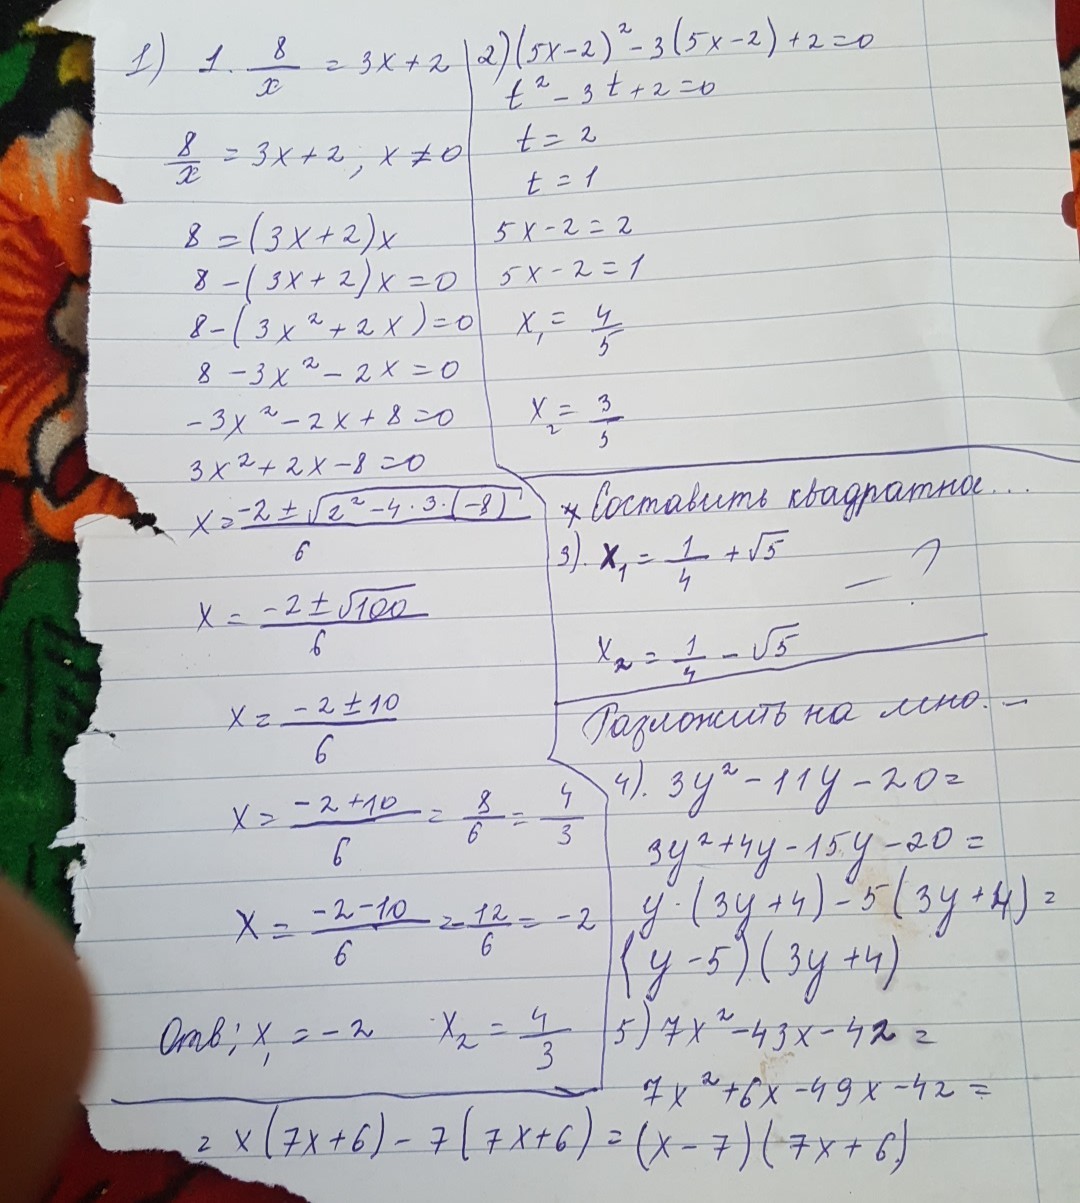 1) 1. 8/x = 3x+2
8/x = 3x+2, x≠0
8 = (3x+2)x
8-(3x+2)x=0
8-(3x²+2x)=0
8-3x²-2x=0
-3x²-2x+8=0
3x²+2x-8=0
x=(-2±√(2²-4·3·(-8)))/6
x=(-2±√100)/6
x=(-2±10)/6
x=(-2+10)/6=8/6=4/3
x=(-2-10)/6=-12/6=-2
Отв; x₁=-2 x₂=4/3
2) (5x-2)²-3(5x-2)+2=0
t²-3t+2=0
t=2
t=1
5x-2=2
5x-2=1
x₁=4/5
x₂=3/5
* Составить квадратное...
3). x₁=1/4+√5
— ?
x₂=1/4-√5
Разложить на мно. –
4). 3y²-11y-20=
3y²+4y-15y-20=
y·(3y+4)-5(3y+4)=
(y-5)(3y+4)
5) 7x²-43x-42=
7x²+6x-49x-42=
= x(7x+6)-7(7x+6)=(x-7)(7x+6)